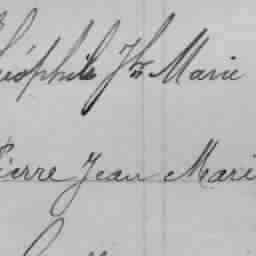 Théophile Jh Marie
Pierre Jean Marie